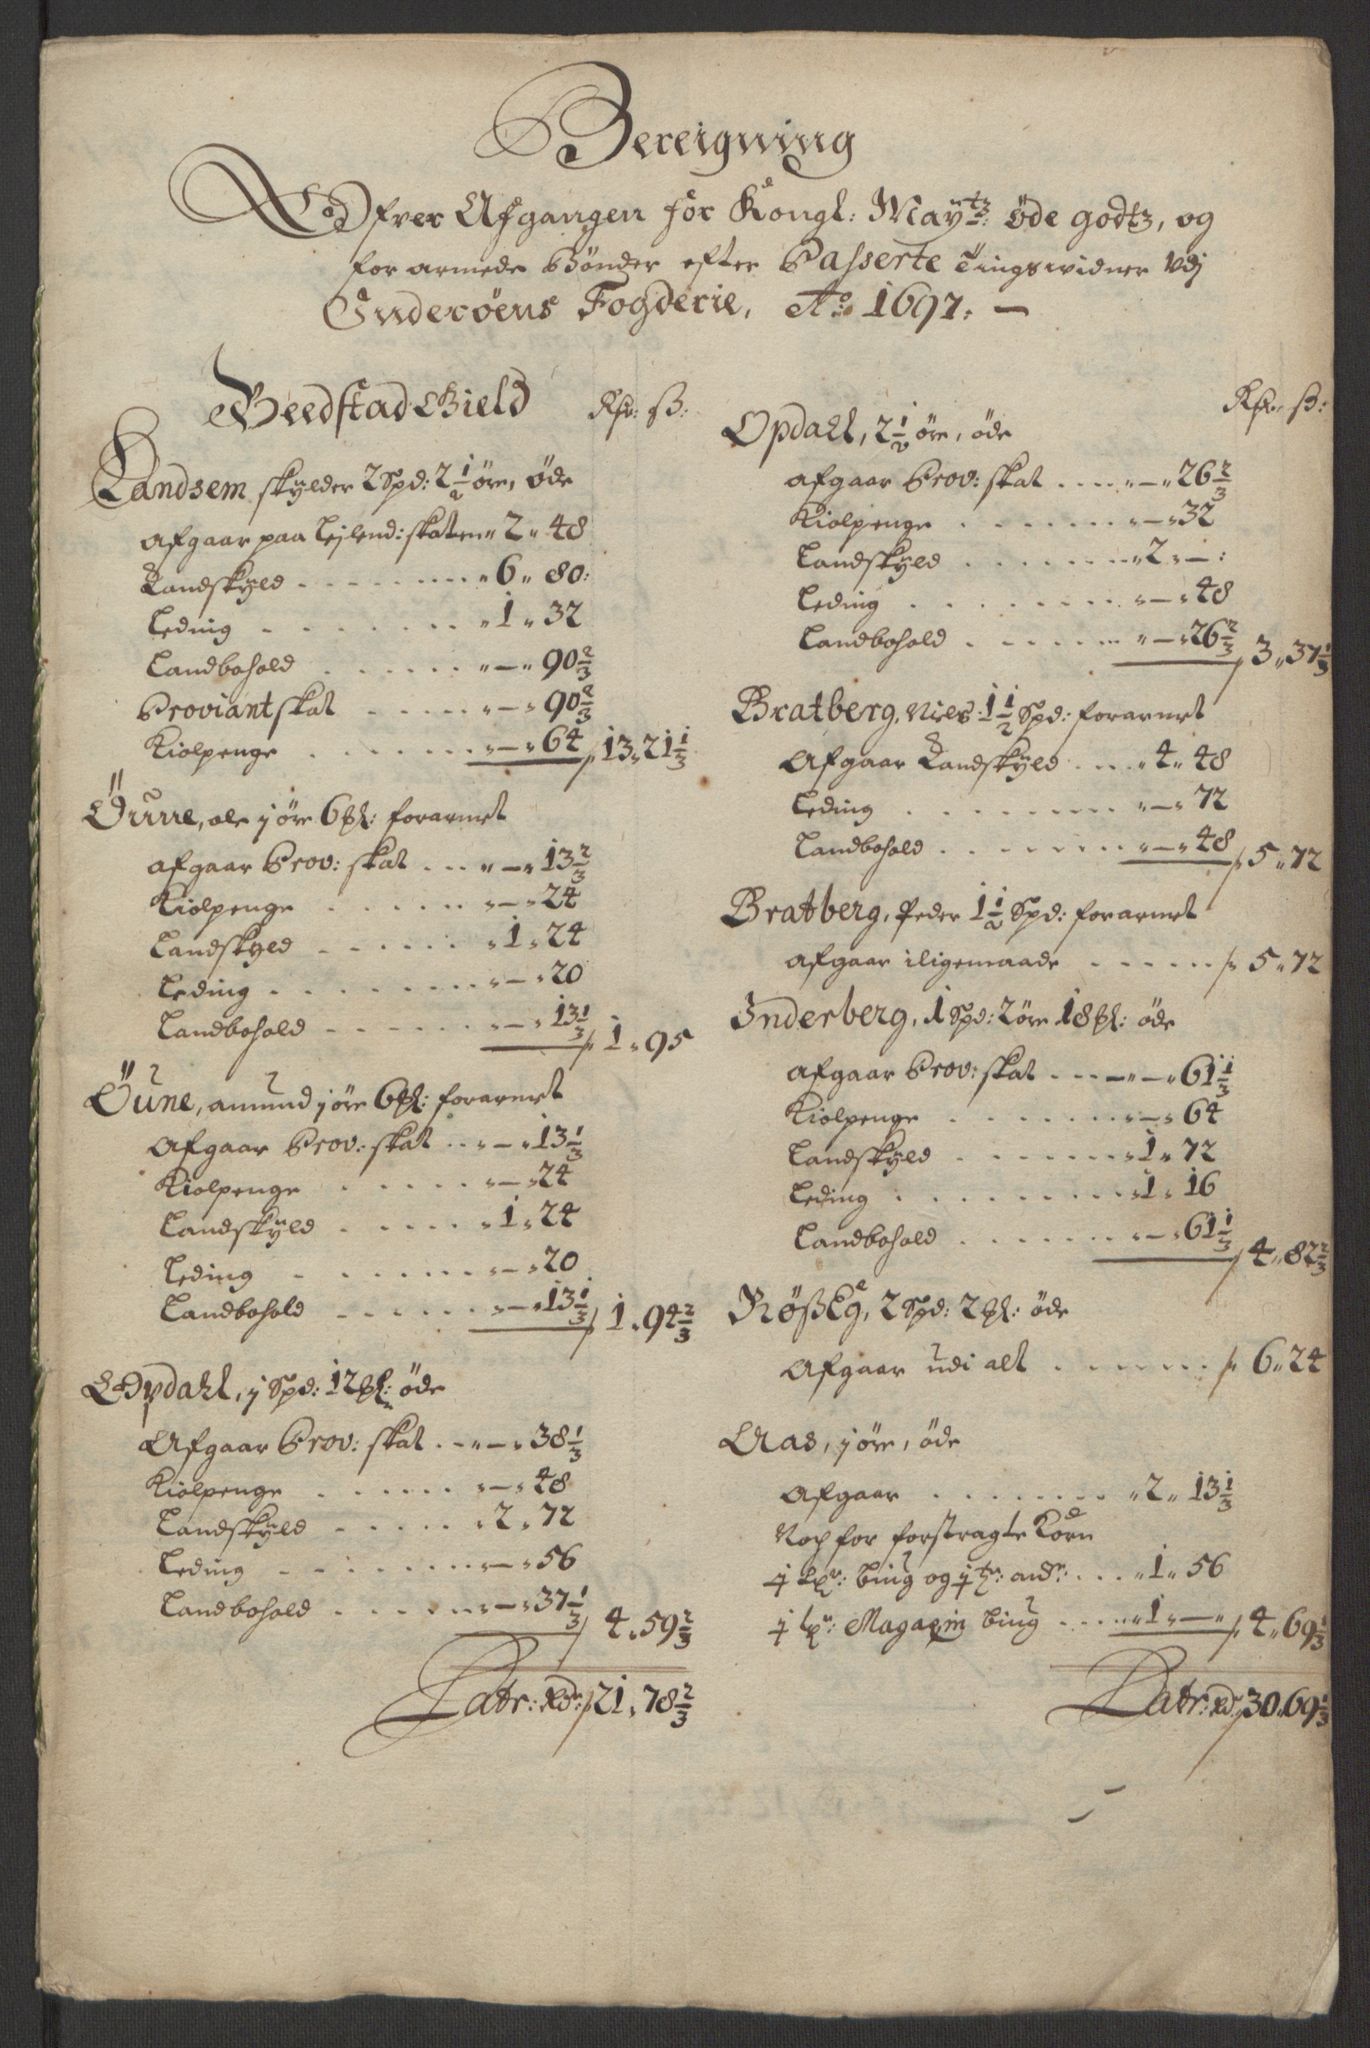 Bereigning
Ofver Afgangen for Kongl: Mayt:tz øde godtz, og
forarmede Bønder efter Passerte Tingswidner Vdj
Inderøens Fogderie, Ao 1697: —
Beedstad Gield Rdr: ß:
Landsem skylder 2 Spd: 2 1/2 øre, øde
afgaar paa Lejlend: skatten " 2 " 48
Landskyld . . . . . . . . " 6 " 80:
Leding . . . . . . . " 1 " 32
Landbohold . . . . . . " — " 90 2/3
Proviant skat . . . . . " — " 90 2/3
Kiolpenge . . . . . . " — " 64 / 13 " 21 1/3
Öuune, ole j øre 6 Mk: forarmet
afgaar Prov: skat . . . " — " 13 2/3
Kiolpenge . . . . . . " — " 24
Landskyld . . . . . . " 1 " 24
Leding . . . . . . . . " — " 20
Landbohold . . . . . . " — " 13 1/3 / 1 " 95
Öune, amund j øre 6 Mk: forarmet
Afgaar Prov: skat . . " — " 13 1/3
Kiolpenge . . . . . " — " 24
Landskyld . . . . . " 1 " 24
Leding . . . . . . " — " 20
Landbohold . . . . . . " — " 13 1/3 / 1 " 94 2/3
Opdahl, j Spd: 12 Mk: øde
Afgaar Prov: skat . . " — " 38 1/3
Kiolpenge . . . . . . " — " 48
Landskyld . . . . . " 2 " 72
Leding . . . . . . . . " — " 56
Landbohold . . . . . . " — " 37 1/3 / 4 " 59 2/3
Latr: Rdr: / 21 " 78 2/3
Rdr: ß:
Opdahl, 2 1/2 øre, øde
afgaar Prov: skat . . . . " — " 26 2/3
Kiolpenge . . . . . . . " — " 32
Landskyld . . . . . . . " 2 " — :
Leding . . . . . . . . . " — " 48
Landbohold . . . . . . . " — " 26 2/3 / 3 " 37 1/3
Bratberg, Niels 1 1/2 Spd: forarmet
Afgaar Landskyld . . . " 4 " 48
Leding . . . . . . . . . " — " 72
Landbohold . . . . . . . . " — " 48 / 5 " 72
Bratberg, Peder 1 1/2 Spd: forarmet
afgaar iligemaade . . . . . / 5 " 72
Inderberg, 1 Spd: 2 øre 18 Mk: øde
afgaar Prov: skat . . . — " — " 61 1/3
Kiolpenge . . . . . . . . " — " 64
Landskyld . . . . . . . . " 1 " 72
Leding . . . . . . . . . . " 1 " 16
Landbohold . . . . . . . " — " 61 1/3 / 4 " 82 2/3
Røßeg, 2 Spd: 2 Mk: øde
Afgaar udi alt . . . . . . . / 6 " 24
Aas, j øre, øde
Afgaar . . . . . . . . " 2 " 13 1/3
Noch for forstragte Korn
bing og . . . " 1 " 56
Magazin bing . . . . " 1 " — " / 4 " 69 1/3
Latr: Rdr / 30 " 69 1/3